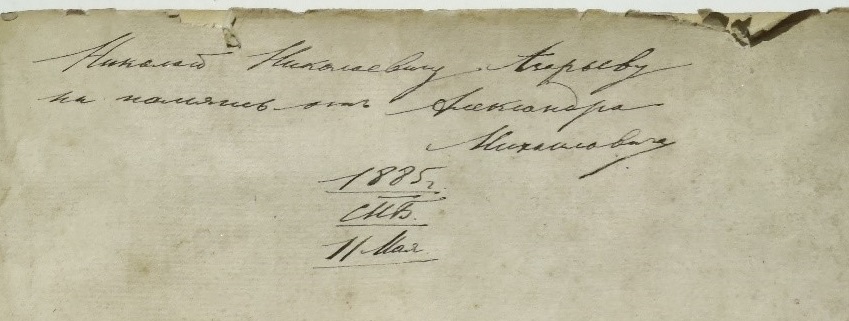 Николаю Николаевичу Агарьеву
на память отъ Александра
Михаиловича
1885 г.
СПБ.
11 Мая